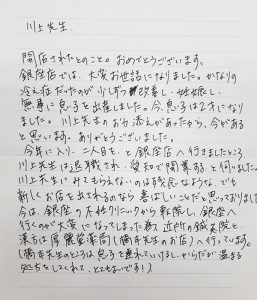 川上先生.
開店されたとのこと。おめでとうございます。
銀座店では、大変お世話になりました。かなりの
冷え症だったのが少しずつ改善し、妊娠し、
無事に息子を出産しました。今、息子は2才になり
ました。川上先生のお力添えがあったから、今がある
と思います。ありがとうございました。
今年に入り、二人目を、と銀座店へ行きましたところ
川上先生は退職され、愛知で開業すると伺いました。
川上先生にみてもらえないのは残念なような、でも
新しくお店を出されるのなら喜ばしいことだと思っておりました
今は、銀座の不妊クリニックから転院し、銀座へ
行くのが大変になってしまった為、近所の鍼灸院と、
漢方は厚麗堂薬局(岡本先生のお店)へ行っています。
(岡本先生のところは息子を連れていけるし、からだが温まる
処方をしてくれて、とてもよいです!)